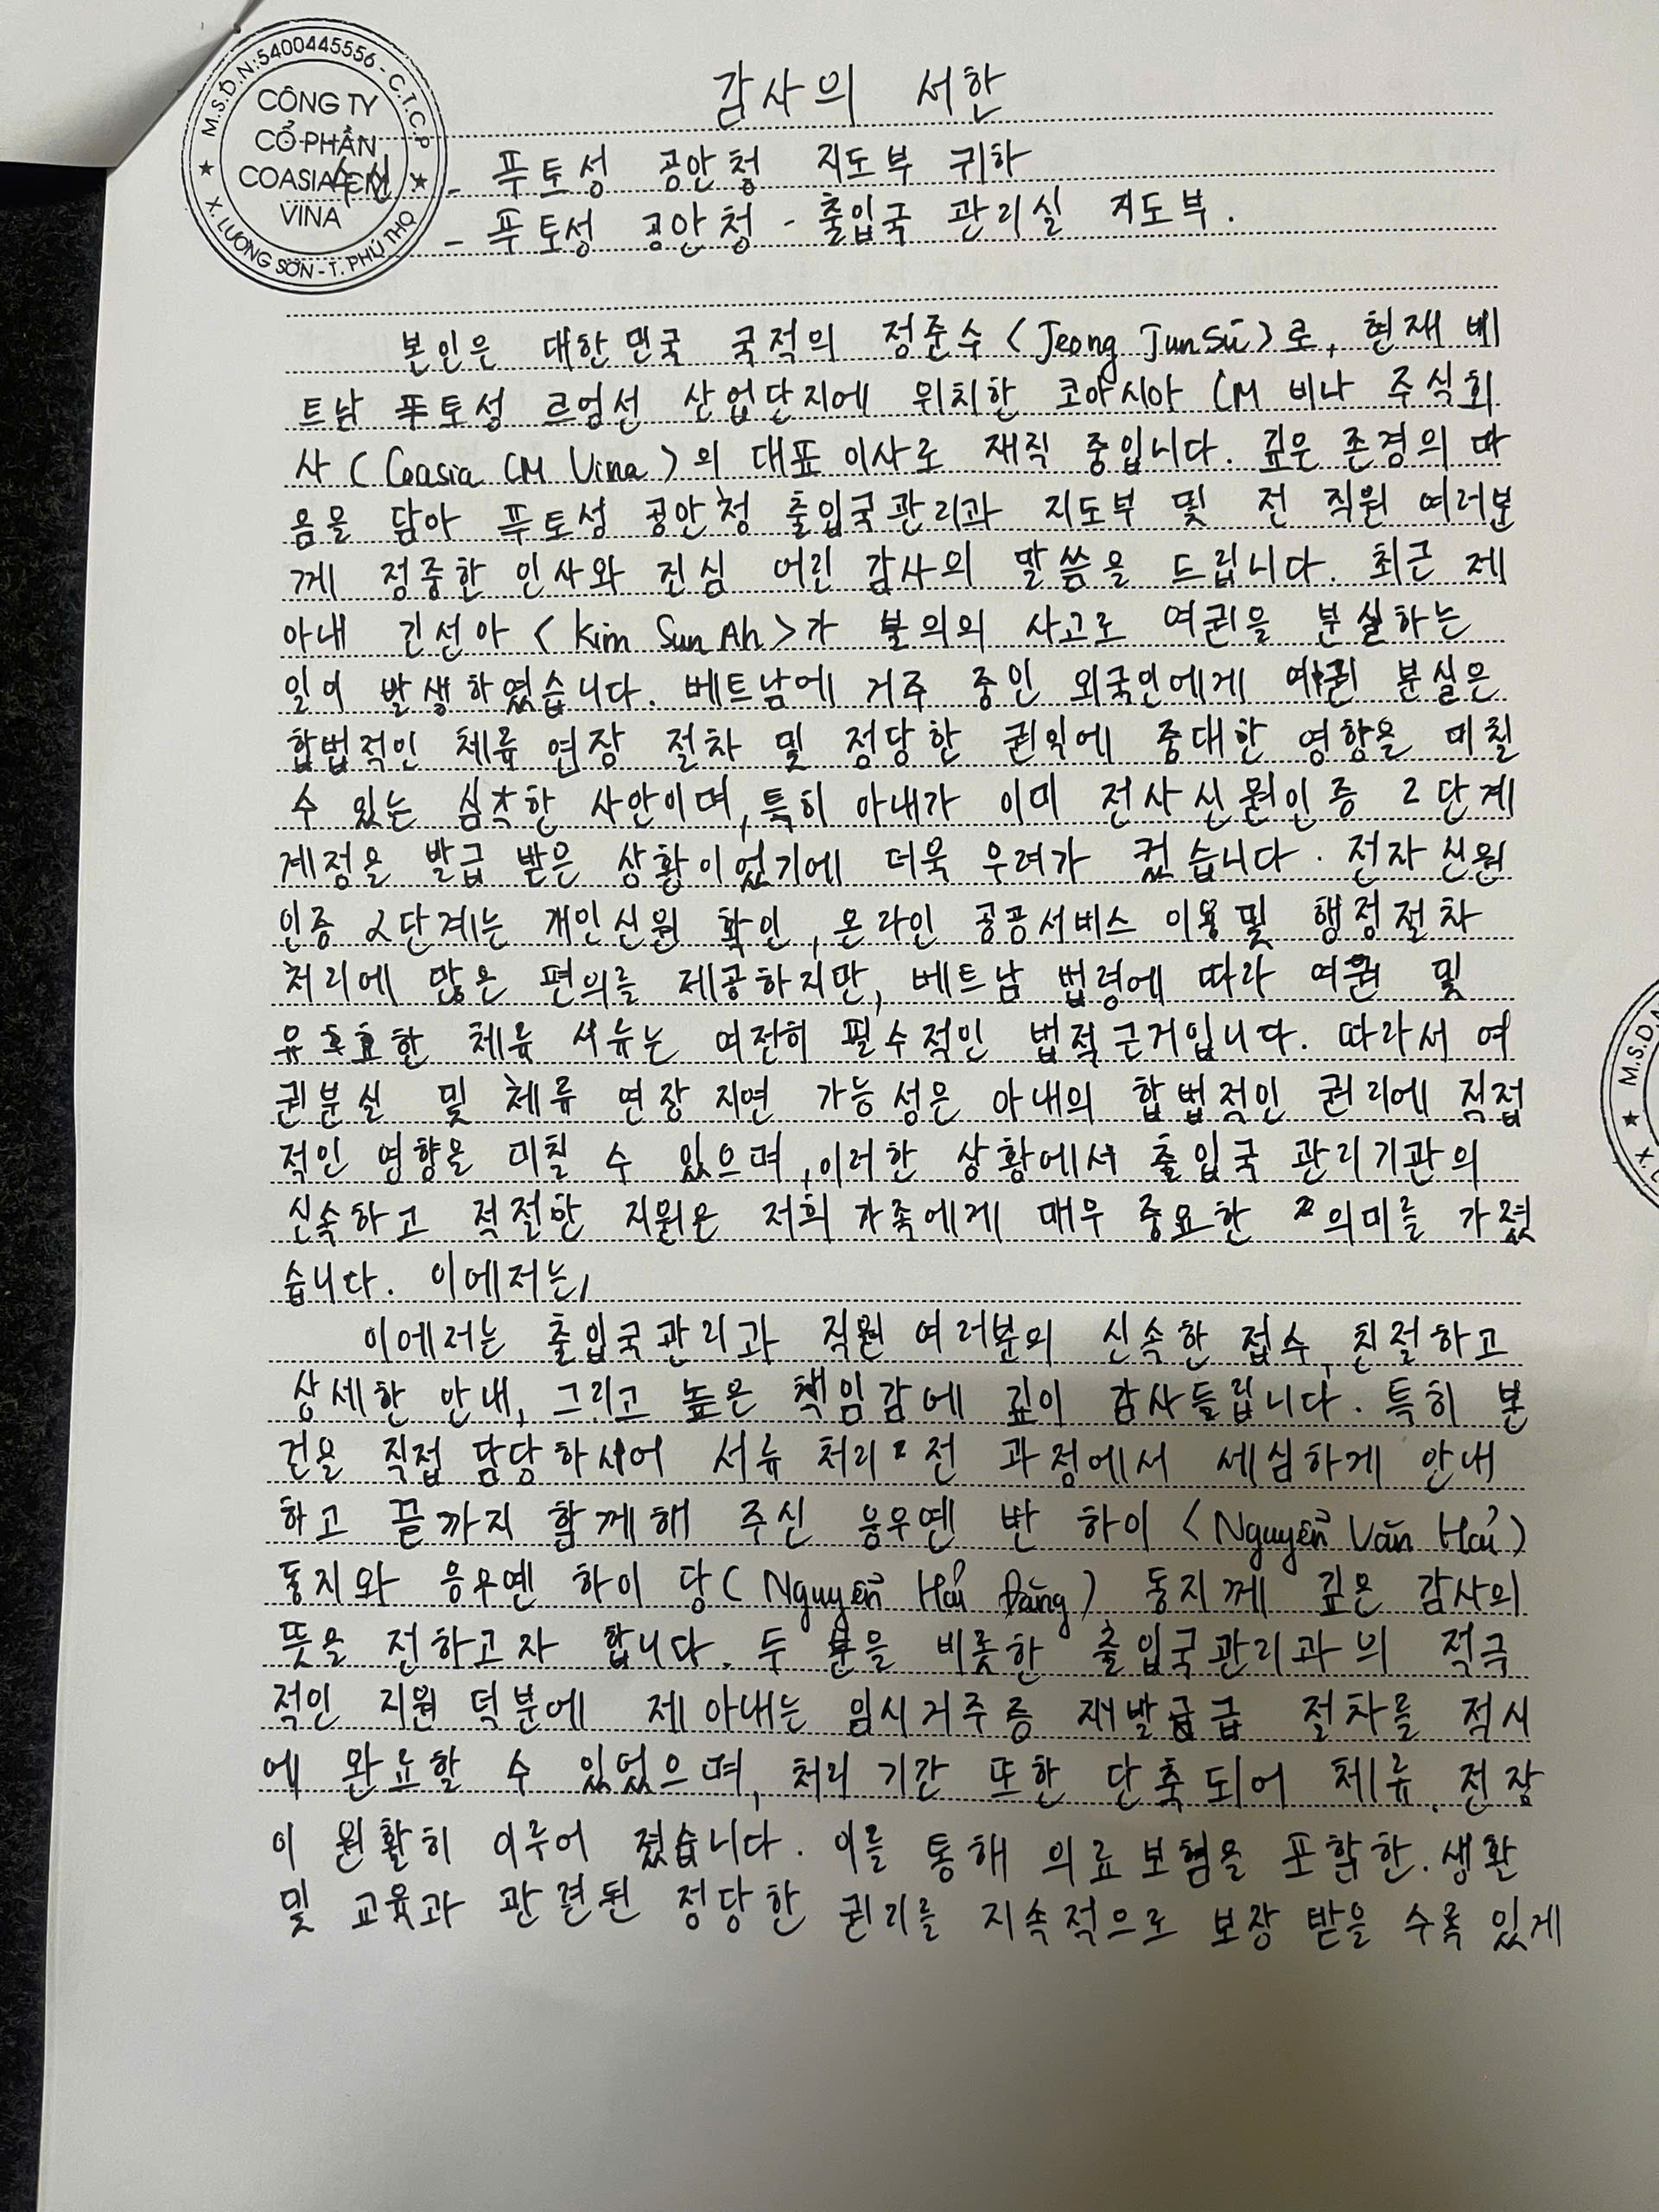 감사의 서한
M.S.D.N:5400445556 - C.T.C.P
CÔNG TY
CỔ PHẦN
COASIA CM
VINA
X. LƯƠNG SƠN - T. PHÚ THỌ
수신 - 푸토성 공안청 지도부 귀하
- 푸토성 공안청 - 출입국 관리실 지도부.
본인은 대한민국 국적의 정준수 <Jeong JunSu>로, 현재 베
트남 푸토성 르엉선 산업단지에 위치한 코아시아 CM 비나 주식회
사 (Coasia CM Vina)의 대표이사로 재직 중입니다. 깊은 존경의 마
음을 담아 푸토성 공안청 출입국관리과 지도부 및 전 직원 여러분
께 정중한 인사와 진심 어린 감사의 말씀을 드립니다. 최근 제
아내 김선아 <Kim Sun Ah>가 불의의 사고로 여권을 분실하는
일이 발생하였습니다. 베트남에 거주 중인 외국인에게 여권 분실은
합법적인 체류 연장 절차 및 정당한 권익에 중대한 영향을 미칠
수 있는 심각한 사안이며, 특히 아내가 이미 전자신원인증 2단계
계정을 발급 받은 상황이었기에 더욱 우려가 컸습니다. 전자신원
인증 2단계는 개인신원 확인, 온라인 공공서비스 이용 및 행정절차
처리에 많은 편의를 제공하지만, 베트남 법령에 따라 여권 및
유효한 체류 서류는 여전히 필수적인 법적 근거입니다. 따라서 여
권분실 및 체류 연장 지연 가능성은 아내의 합법적인 권리에 직접
적인 영향을 미칠 수 있으며, 이러한 상황에서 출입국 관리기관의
신속하고 적절한 지원은 저희 가족에게 매우 중요한 의미를 가졌
습니다. 이에저는,
이에저는 출입국관리과 직원 여러분의 신속한 접수, 친절하고
상세한 안내, 그리고 높은 책임감에 깊이 감사드립니다. 특히 본
건을 직접 담당하시어 서류 처리 전 과정에서 세심하게 안내
하고 끝까지 함께해 주신 응우옌 반 하이 (Nguyễn Văn Hải)
동지와 응우옌 하이 당 (Nguyễn Hải Đăng) 동지께 깊은 감사의
뜻을 전하고자 합니다. 두 분을 비롯한 출입국관리과의 적극
적인 지원 덕분에 제 아내는 임시거주증 재발급 절차를 적시
에 완료할 수 있었으며, 처리 기간 또한 단축되어 체류, 연장
이 원활히 이루어 졌습니다. 이를 통해 의료보험을 포함한. 생활
및 교육과 관련된 정당한 권리를 지속적으로 보장 받을 수 있게
M.S.D.N